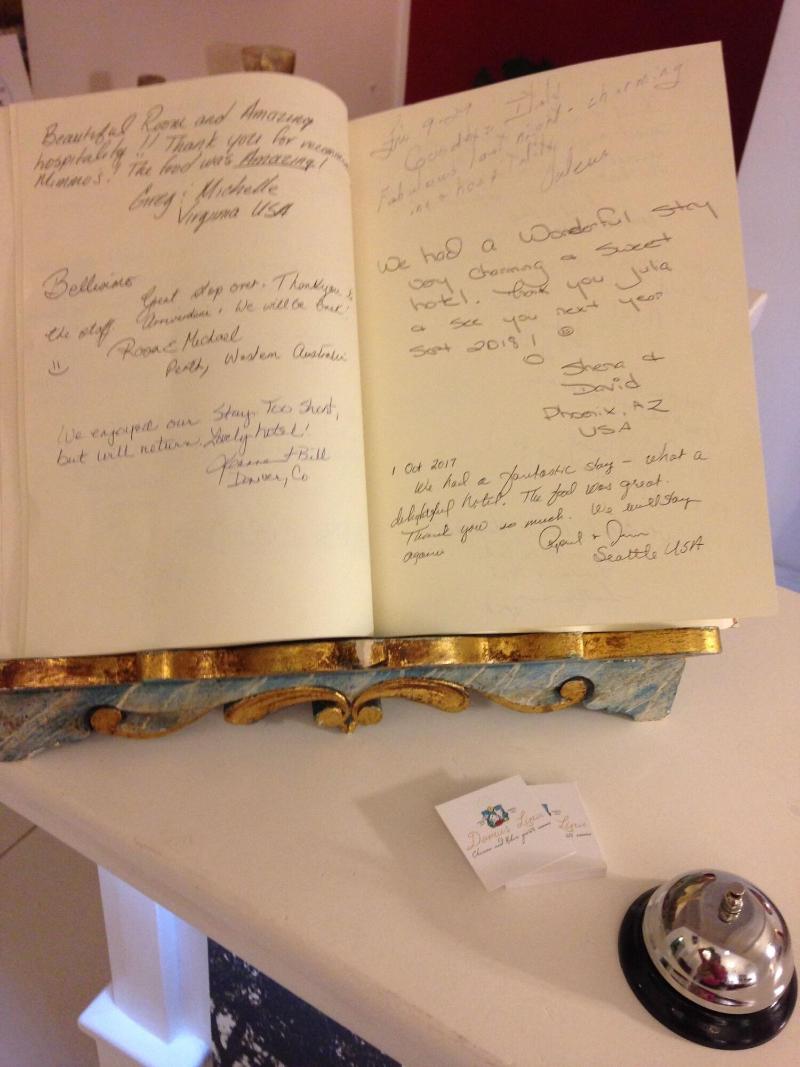 Beautiful Room and Amazing
hospitality!! Thank you for
Mimmo's! The food was Amazing!
Greg & Michelle
Virginia USA
Bellisimo
Great stop over. Thankyou
the staff. We will be back!
Michael
Perth, Western Australia
We enjoyed our Stay. Too Short,
but will return. Lovely hotel!
& Bill
Denver, Co
9-29
Fabulous last night - charming
We had a Wonderful Stay
very charming & Sweet
hotel. Thank you Julia
& see you next year
Sept 2018!
Shena &
David
Phoenix, AZ
USA
1 Oct 2017
We had a fantastic stay - what a
delightful hotel. The food was great.
Thank you so much. We will stay
again
Seattle USA
Domus Lina